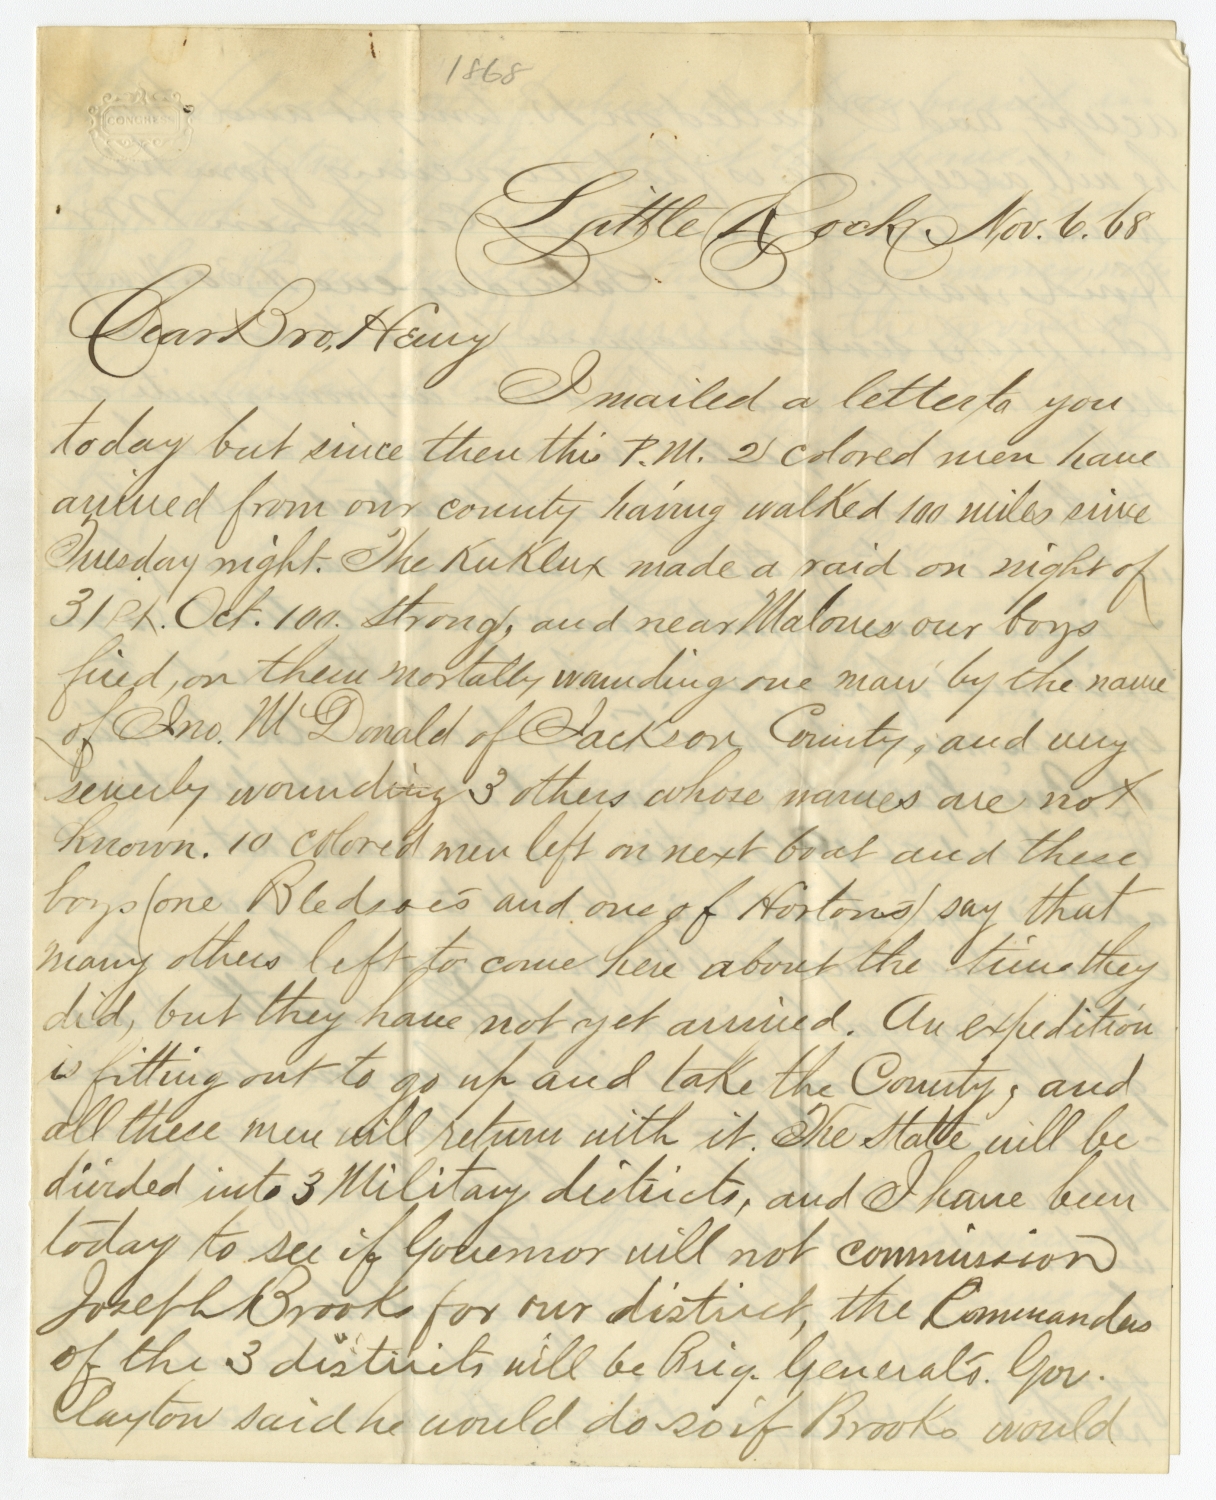 1868
CONGRESS
Little Rock, Nov. 6. 68
Dear Bro. Henry
I mailed a letter to you
today but since then this P.M. 2 colored men have
arrived from our county having walked 100 miles since
Tuesday night. The KuKlux made a raid on night of
31st. Oct. 100. strong, and near Malones our boys
fired, on them mortally wounding one man by the name
of Jno. McDonald of Jackson County, and very
severly wounding 3 others whose names are not
known. 10 colored men left on next boat and these
boys (one Bledsoe's and one of Horton's) say that
many others left to come here about the time they
did, but they have not yet arrived. An expedition
is fitting out to go up and take the County, and
all these men will return with it. The State will be
divided into 3 Military districts, and I have been
today to see if Governor will not commission
Joseph Brooks for our district, the Commanders
of the 3 districts will be Brig. General's. Gov.
Clayton said he would do so if Brooks would